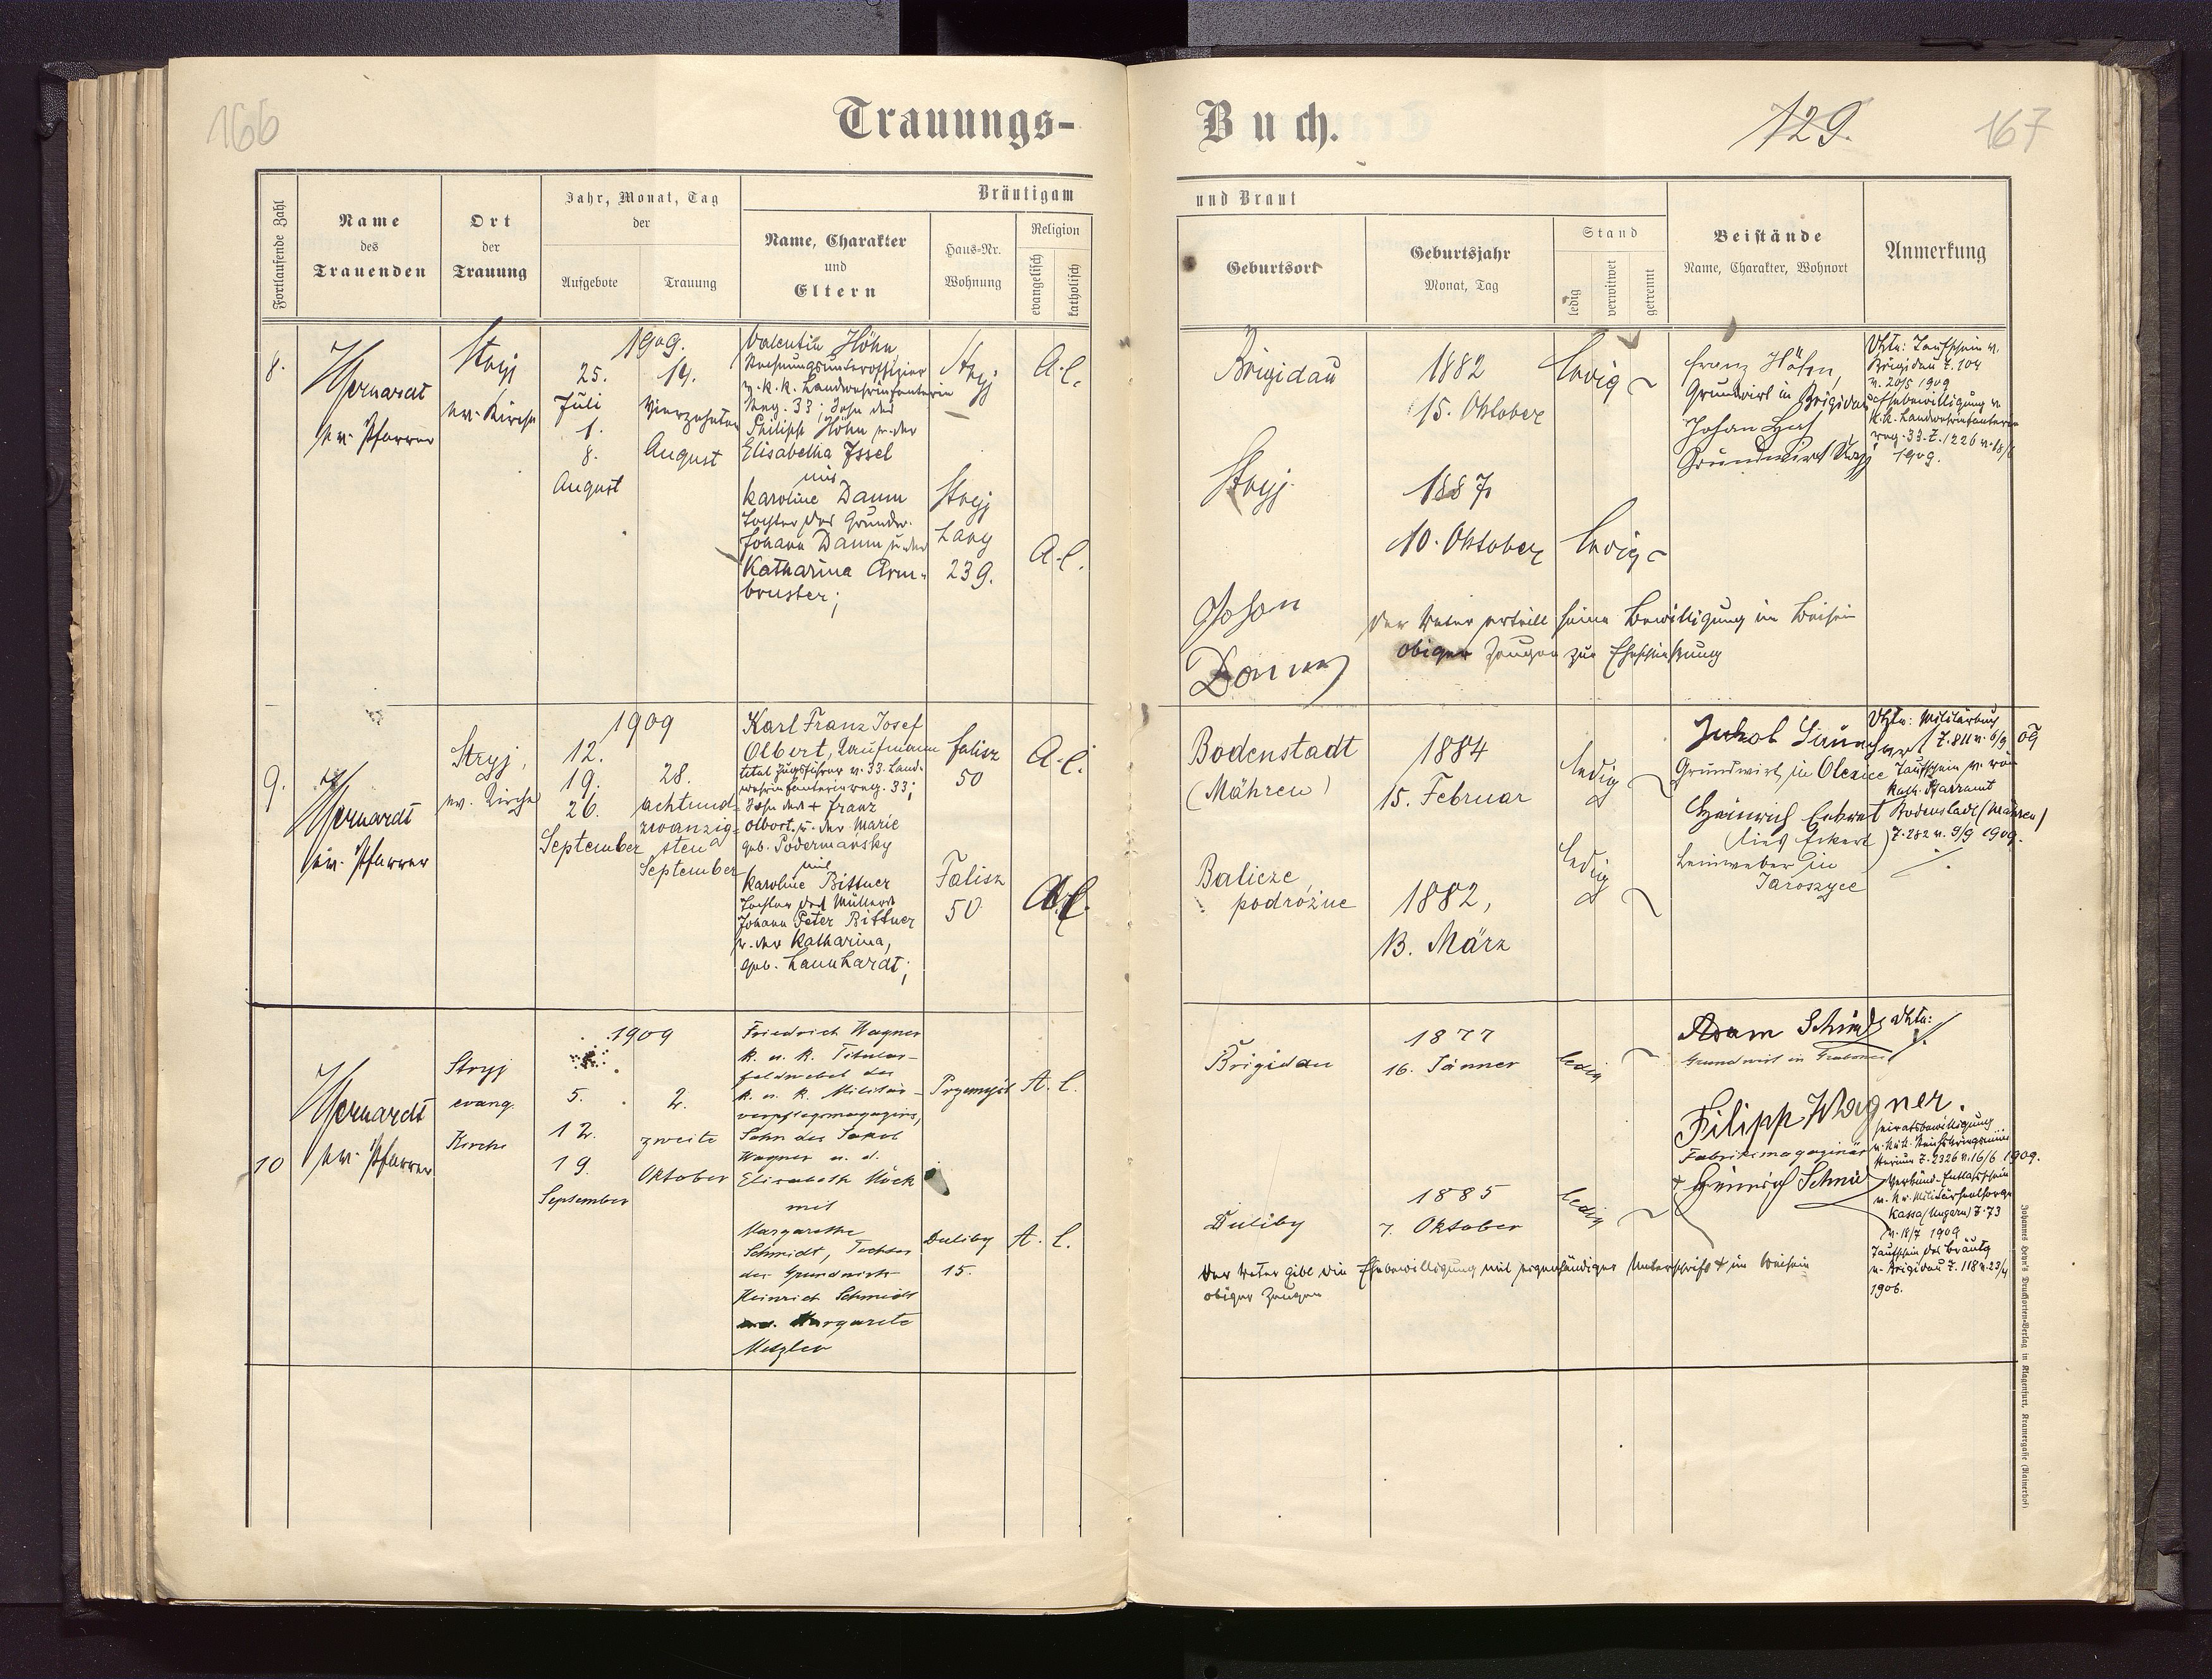 166
Trauungs-
Buch.
129.
167
Fortlaufende Zahl
Name
des
Trauenden
Ort
der
Trauung
Jahr, Monat, Tag
der
Aufgebote
Trauung
Bräutigam
Name, Charakter
und
Eltern
Haus-Nr.
Wohnung
Religion
evangelisch
katholisch
und Braut
Geburtsort
Geburtsjahr
Monat, Tag
Stand
ledig
verwitwet
getrennt
Beistände
Name, Charakter, Wohnort
Anmerkung
8.
ev. Pfarrer
Stryj
ev. Kirche
1909.
25.
Juli
1.
8.
August
14.
Vierzehnten
August
Valentin Höhn
Rechnungsunteroffizier
v. k. k. Landwehrinfanterie
Reg. 33; Sohn des
Philipp Höhn u. der
Elisabetha Issel
mit
Karoline Daum
Tochter des Grundw.
Johann Daum u. der
Katharina Arm-
bruster;
Stryj
Stryj
Lany
239.
A. C.
A. C.
Brigidau
Stryj
1882
15. Oktober
1887
10. Oktober
ledig
ledig
Franz Höhn,
Grundwirt in Brigidau
Johan
Grundwirt Stryj
Taufschein v.
Brigidau Z. 104
v. 20/5 1909
Ehebewilligung v.
k. k. Landwehrinfanterie
reg. 33. Z. 1226 v. 18/6
1909.
Johan
Daum
Der Vater erteilt seine Bewilligung im Beisein
obiger Zeugen zur Eheschließung
9.
ev. Pfarrer
Stryj,
ev. Kirche
1909
12.
19.
26.
September
28.
achtund-
zwanzig-
sten
September
Karl Franz Josef
Olbert, Kaufmann
titul Zugsführer v. 33. Land-
wehrinfanteriereg. 33;
Sohn des + Franz
Olbert u. der Marie
geb. Podermansky
mit
Karoline Bittner
Tochter des Müllers
Johann Peter Bittner
u. der Katharina,
geb. Launhardt;
Falisz
50
Falisz
50
A. C.
A. C.
Bodenstadt
(Mähren)
Balicze
podróżne
1884
15. Februar
1882,
13. März
ledig
ledig
Jakob
Grundwirt, in Olexice
Heinrich
(lies Eckert)
Leinweber in
Jaroszyce
Militärbuch
Z. 811 v. 6/9 09
Taufschein v. röm
kath. Pfarramt
Bodenstadt (Mähren)
Z. 282 v. 9/9 1909.
10
ev. Pfarrer
Stryj
evang.
Kirche
1909
5.
12.
19.
September
2.
zweite
Oktober
Friedrich Wagner
k. u. k. Titular-
feldwebel des
k. u. k. Militär-
verpflegsmagazins,
Sohn des Jakob
Wagner u. d.
Elisabeth Höck
mit
Margarethe
Schmidt, Tochter
des Grundwirts
Heinrich Schmidt
u. d. Margarete
Metzler
Przemyśl
Duliby
15.
A. C.
A. C.
Brigidau
Duliby
1877
16. Jänner
1885
7. Oktober
ledig
ledig
Adam
Grundwirt in
Filipp Wagner.
Fabriksmagazinär
+ Heinrich
Heiratsbewilligung
Z. 2326 v. 16/6 1909.
Verkünd-Entlasschein
v. ev. Militärseelsorge
Kassa (Ungarn) Z. 73
v. 18/7 1909
Taufschein des Bräutg
v. Brigidau Z. 118 v. 23/4
1906.
Der Vater gibt die Ehebewilligung mit eigenhändiger Unterschrift + im Beisein
obiger Zeugen
Johannes Heyn's Drucksorten-Verlag in Klagenfurt, Kramergasse (Rainerhof)